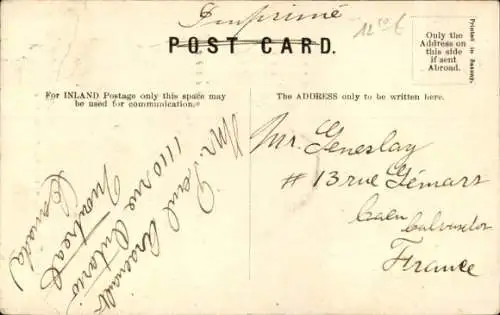 Imprimé
POST CARD.
12.50 €
Only the
Address on
this side
if sent
Abroad.
Printed in Saxony.
For INLAND Postage only this space may
be used for communication.
The ADDRESS only to be written here.
Mr. Paul Arsenault
1110 rue Ontario
Montreal
Canada
Mr. Geneslay
# 13 rue Gémars
Caen
Calvados
France